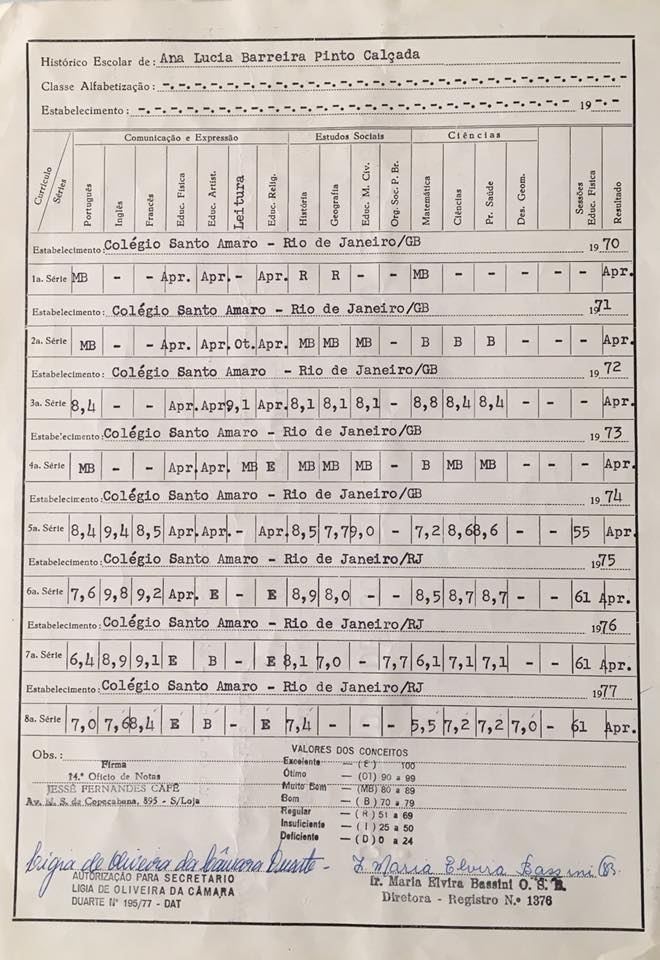 Histórico Escolar de: Ana Lucia Barreira Pinto Calçada
Classe Alfabetização: -.-.-.-.-.-.-.-.-.-.-.-.-.-.-.-.-.-.-.-.-.-.-.-.-.-
Estabelecimento: -.-.-.-.-.-.-.-.-.-.-.-.-.-.-.-.-.-.-.-.-.- 19-.-
Comunicação e Expressão Estudos Sociais Ciências
Currículo Séries Português Inglês Francês Educ. Física Educ. Artíst. Leitura Educ. Relig. História Geografia Educ. M. Civ. Org. Soc. P. Br. Matemática Ciências Pr. Saúde Des. Geom. Sessões Educ. Física Resultado
Estabelecimento: Colégio Santo Amaro - Rio de Janeiro/GB 1970
1a. Série MB - - Apr. Apr. - Apr. R R - - MB - - - - Apr.
Estabelecimento: Colégio Santo Amaro - Rio de Janeiro/GB 1971
2a. Série MB - - Apr. Apr. Ot. Apr. MB MB MB - B B B - - Apr.
Estabelecimento: Colégio Santo Amaro - Rio de Janeiro/GB 1972
3a. Série 8,4 - - Apr. Apr 9,1 Apr. 8,1 8,1 8,1 - 8,8 8,4 8,4 - - Apr.
Estabelecimento: Colégio Santo Amaro - Rio de Janeiro/GB 1973
4a. Série MB - - Apr. Apr. MB E MB MB MB - B MB MB - - Apr.
Estabelecimento: Colégio Santo Amaro - Rio de Janeiro/GB 1974
5a. Série 8,4 9,4 8,5 Apr. Apr. - Apr. 8,5 7,7 9,0 - 7,2 8,6 8,6 - - 55 Apr.
Estabelecimento: Colégio Santo Amaro - Rio de Janeiro/RJ 1975
6a. Série 7,6 9,8 9,2 Apr. E - E 8,9 8,0 - - 8,5 8,7 8,7 - - 61 Apr.
Estabelecimento: Colégio Santo Amaro - Rio de Janeiro/RJ 1976
7a. Série 6,4 8,9 9,1 E B - E 8,1 7,0 - 7,7 6,1 7,1 7,1 - - 61 Apr.
Estabelecimento: Colégio Santo Amaro - Rio de Janeiro/RJ 1977
8a. Série 7,0 7,6 8,4 E B - E 7,4 - - - 5,5 7,2 7,2 7,0 - 61 Apr.
Obs.:
Firma
14.º Ofício de Notas
JESSÉ FERNANDES CAFÉ
Av. N. S. de Copacabana, 895 - S/Loja
VALORES DOS CONCEITOS
Excelente — (E) 100
Ótimo — (OT) 90 a 99
Muito Bom — (MB) 80 a 89
Bom — (B) 70 a 79
Regular — (R) 51 a 69
Insuficiente — (I) 25 a 50
Deficiente — (D) 0 a 24
Ligia de Oliveira da Câmara Duarte -
AUTORIZAÇÃO PARA SECRETARIO
LIGIA DE OLIVEIRA DA CÂMARA
DUARTE Nº 195/77 - DAT
Maria Elvira Bassini
Ir. Maria Elvira Bassini O. S. B.
Diretora - Registro N.º 1376